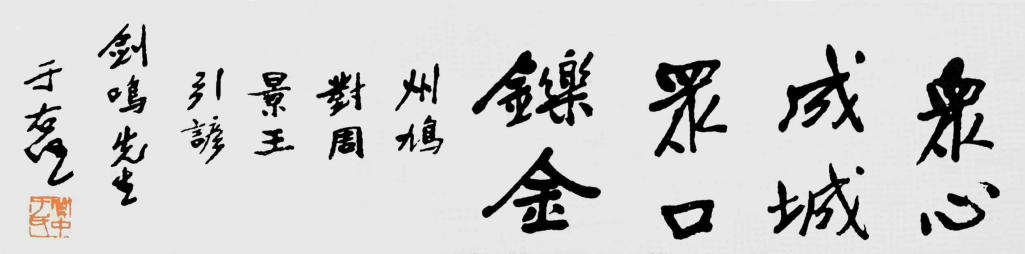 眾心
成城
眾口
鑠金
州鳩
對周
景王
引諺
劍鳴先生
于右任
關中于氏